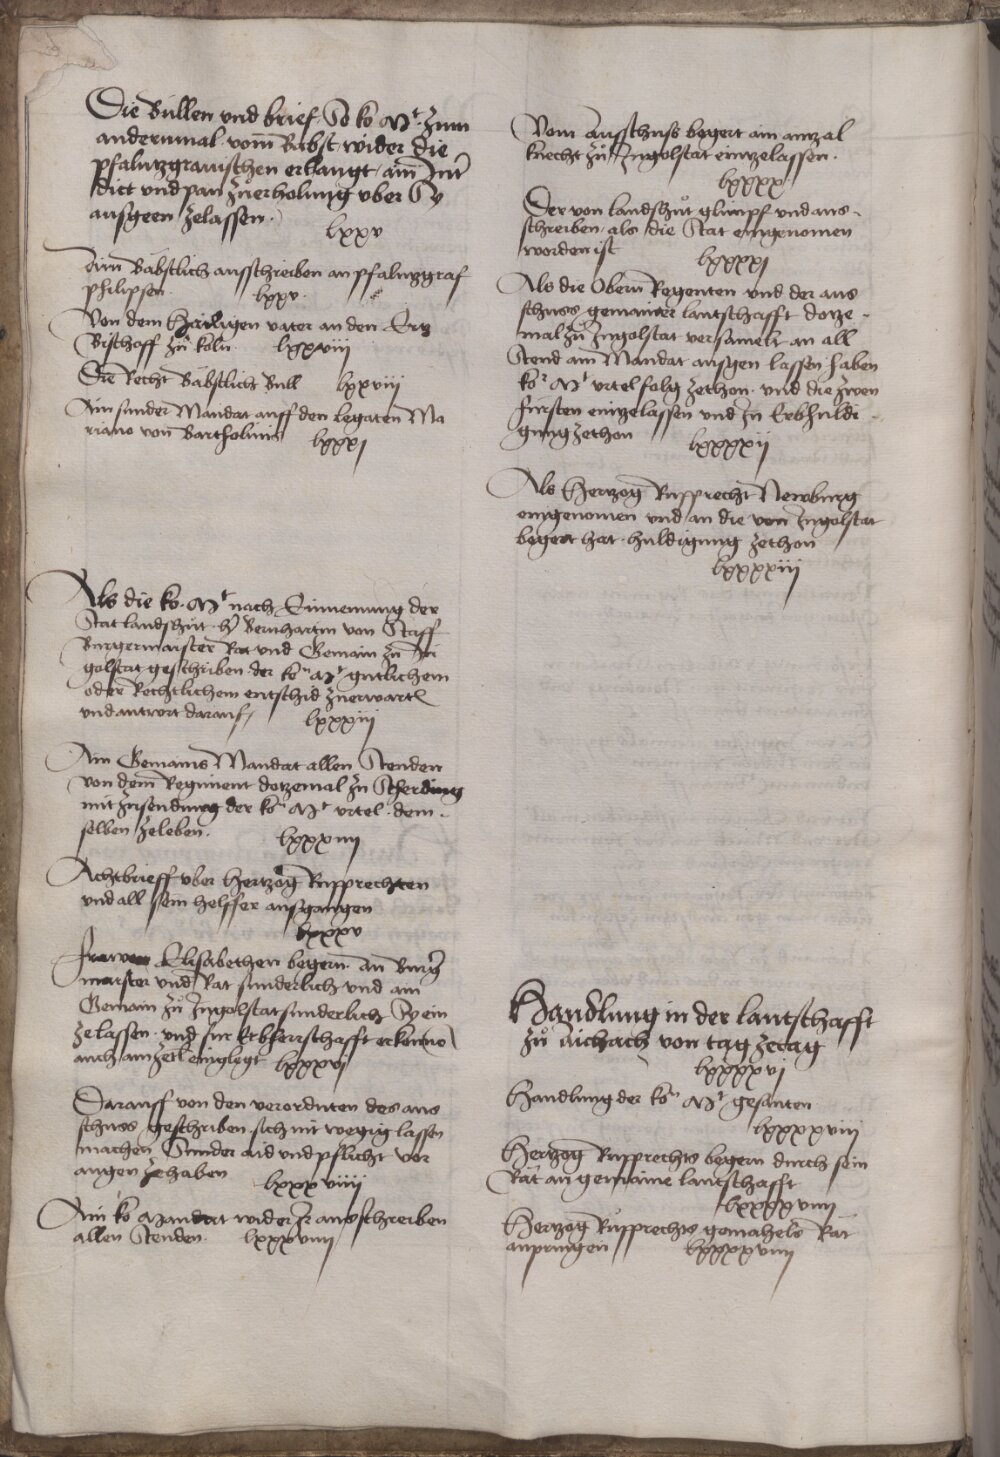 Die Bullen vnd brief So ko Mt zum
andernmal vom Babst wider die
pfalntzgrauischen erlangt ain Inter
dict vnd pan zuerholung vber Sy
ausgeen zelassen.
lxxv
Ain Bäbstlich ausschreiben an pfalntzgraf
philipsen.
lxxv.
Von dem Hailigen vater an den Ertz
Bischoff zů köln lxxviii
Die Recht Bäbstlich Bull lxxviii
Ain sunder Mandat auff den legaten Ma
riano von Bartholinis
lxxxi
Als die ko. Mt nach Einnemung der
Stat landshut hr Bernhartin von Stauff
Burgermaister Rat vnd Gemain zu In
golstat geschriben der kon Mt gutlichem
oder Rechtlichem entschid zuerwarten
vnd antwort darauf
lxxxiii
Ain Gemains Mandat allen Stenden
von dem Regiment dotzemal zu Scherding
mit zusendung der kon Mt vrtel. dem
selben zeleben.
lxxxiiii
Achtbrieff vber Hertzog Rupprechten
vnd all sein helffer ausgangen
lxxxv
frawen Elisabethen begern an Burger
maister vnd Rat sunderlich vnd ain
Gemain zů Ingolstat sunderlich Sy ein
zelassen. vnd fur Erbherrschafft erkennen
auch ain zetl eingelegt lxxxvi
Darauff von den verordnten des aus
schuss geschriben sich nit wegig lassen
machen Sunder aid vnd pflicht vor
augen zehaben
lxxxviiii
Ain ko Mandat wider Ir ausschreiben
allen Stenden. lxxxviiii
Vom Ausschuss begert ain antzal
knecht zů Ingolstat eintzelassen.
lxxxx
Der von landshůt glimpf vnd aus
schreiben als die Stat eingenomen
worden ist
lxxxxi
Als die Obern Regenten vnd der aus
schuss gemainer lantschafft dotze
mal zů Ingolstat versamelt an all
Stend ain Mandat ausgen lassen haben
kor Mt vrtel folg zethon. vnd die zwen
fursten eintzelassen vnd In Erbhuldi
gung zethon
lxxxxii
Als Hertzog Rupprecht Newburg
eingenomen vnd an die von Ingolstat
begert hat. huldigung zethon
lxxxxiii
Handlung in der lantschafft
zů Aichach von tag zetag
lxxxxvi
Handlung der kon Mt gesanten
lxxxxviii
Hertzog Rupprechts begern durch sein
Rät an gemaine lantschafft
lxxxxviiii
Hertzog Rupprechts gemahels Rat
anpringen
lxxxxviiii